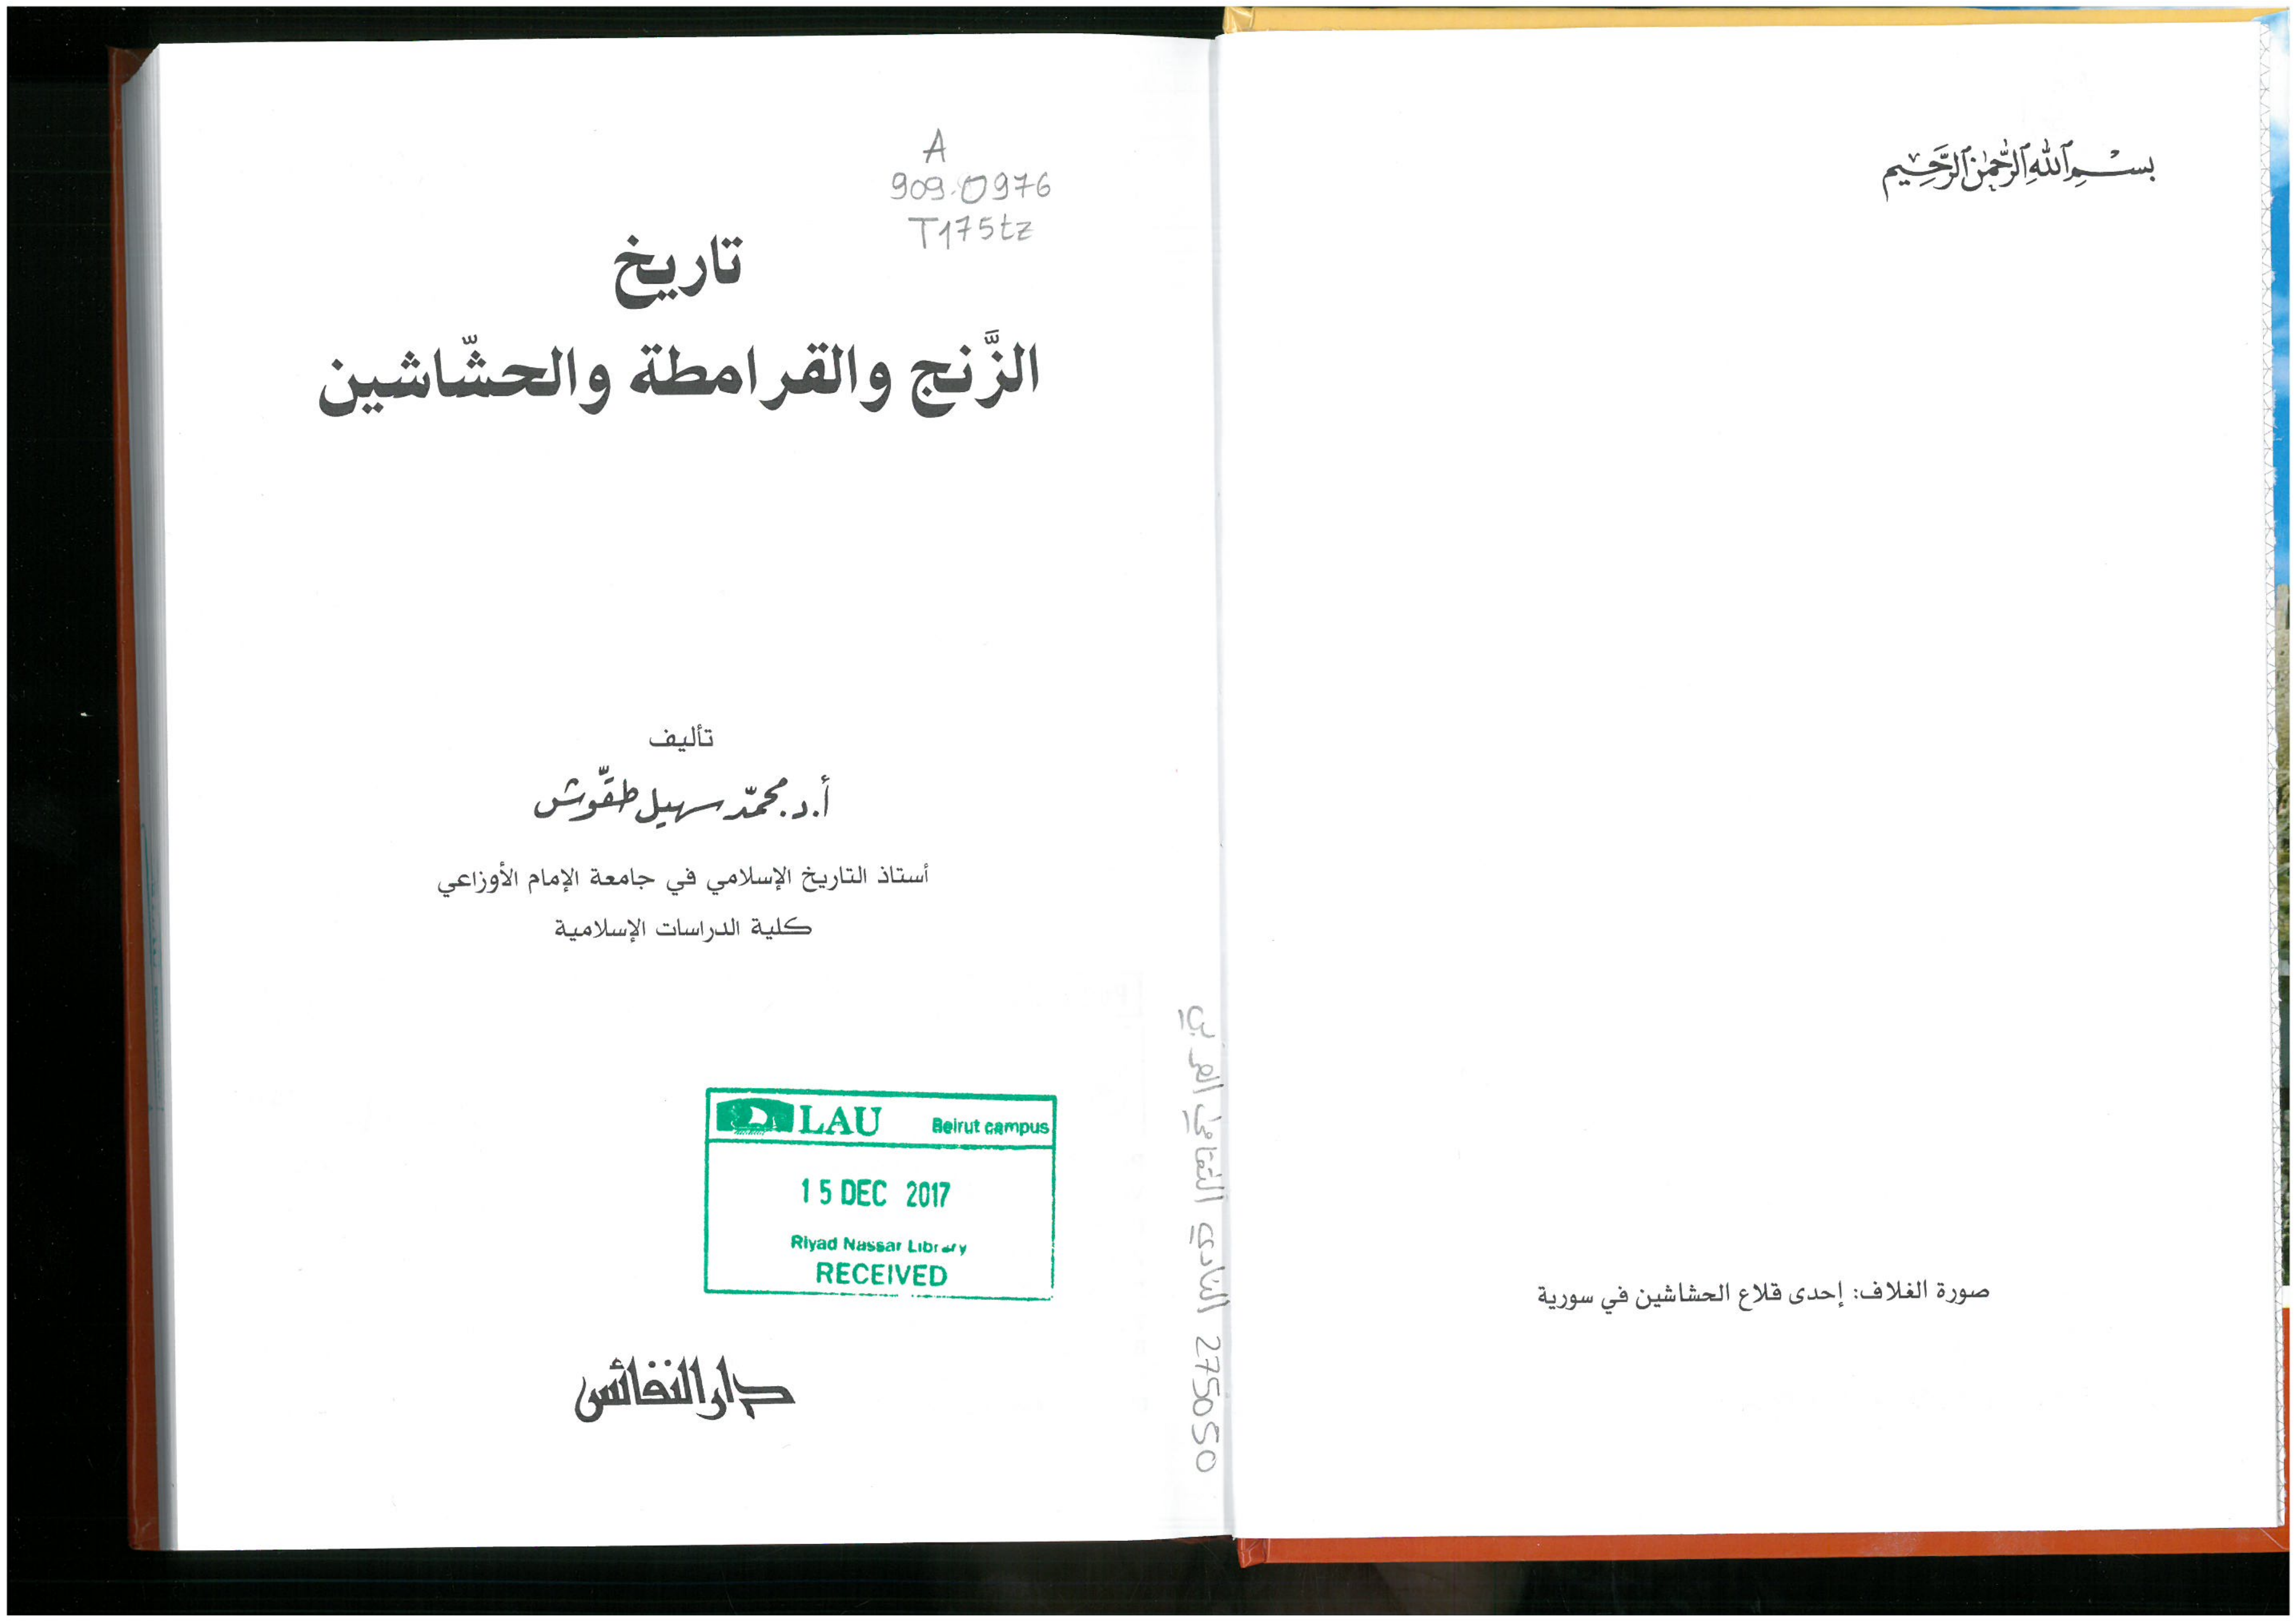 بسم الله الرحمن الرحيم
صورة الغلاف: إحدى قلاع الحشاشين في سورية
A
909.0976
T175tz
تاريخ
الزَّنج والقرامطة والحشّاشين
تأليف
أ.د. محمّد سهيل طقّوش
أستاذ التاريخ الإسلامي في جامعة الإمام الأوزاعي
كلية الدراسات الإسلامية
LAU Beirut campus
15 DEC 2017
Riyad Nassar Library
RECEIVED
دار النفائس
275050 النادي الثقافي العربي